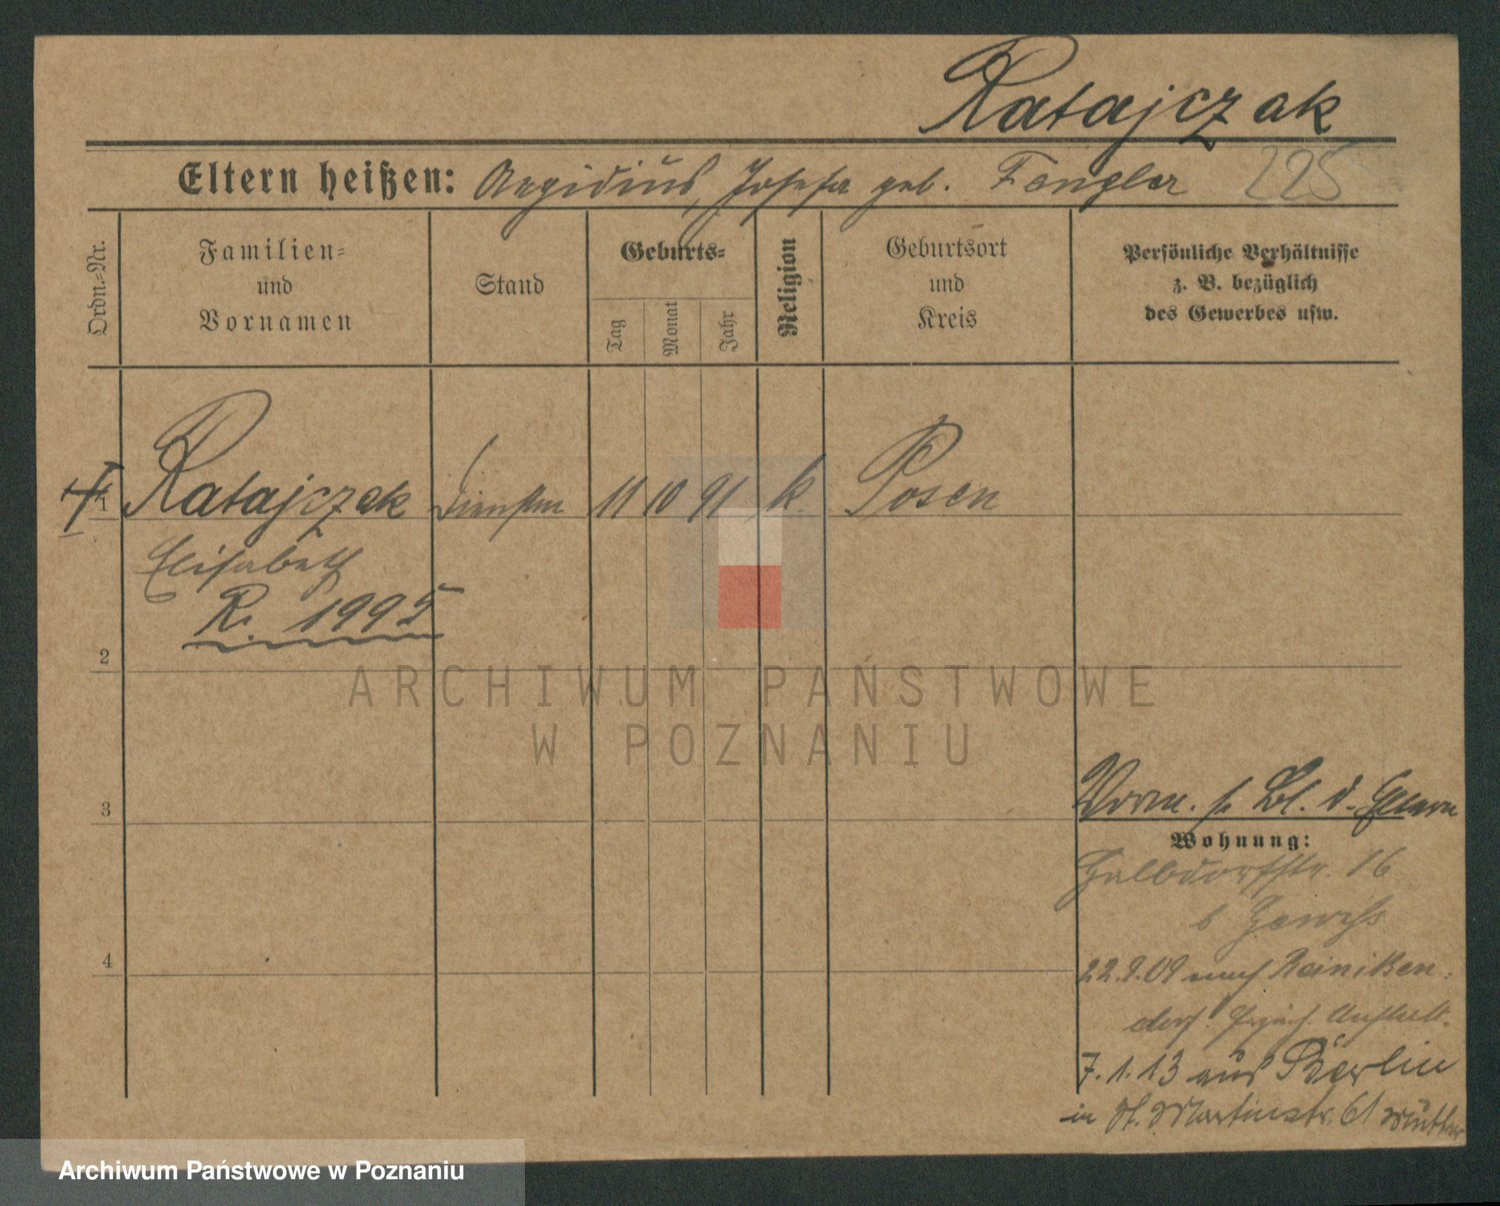 Ratajczak
Eltern heißen: Aegidius, Josefa geb. Fengler 225
Ordn.=Nr.
Familien=
und
Vornamen
Stand
Geburts=
Tag
Monat
Jahr
Religion
Geburtsort
und
Kreis
Persönliche Verhältnisse
z. B. bezüglich
des Gewerbes usw.
1 Ratajczak 11 10 91 k. Posen
Elisabeth
R. 1995
2
ARCHIWUM PAŃSTWOWE
W POZNANIU
3
Vorm. s. Bl. d. Eltern
Wohnung:
Halbdorfstr. 16
b
4
22.9.09 nach Reinicken-
dorf
7.1.13 aus Berlin
in St. Martinstr. 61 Mutter
Archiwum Państwowe w Poznaniu